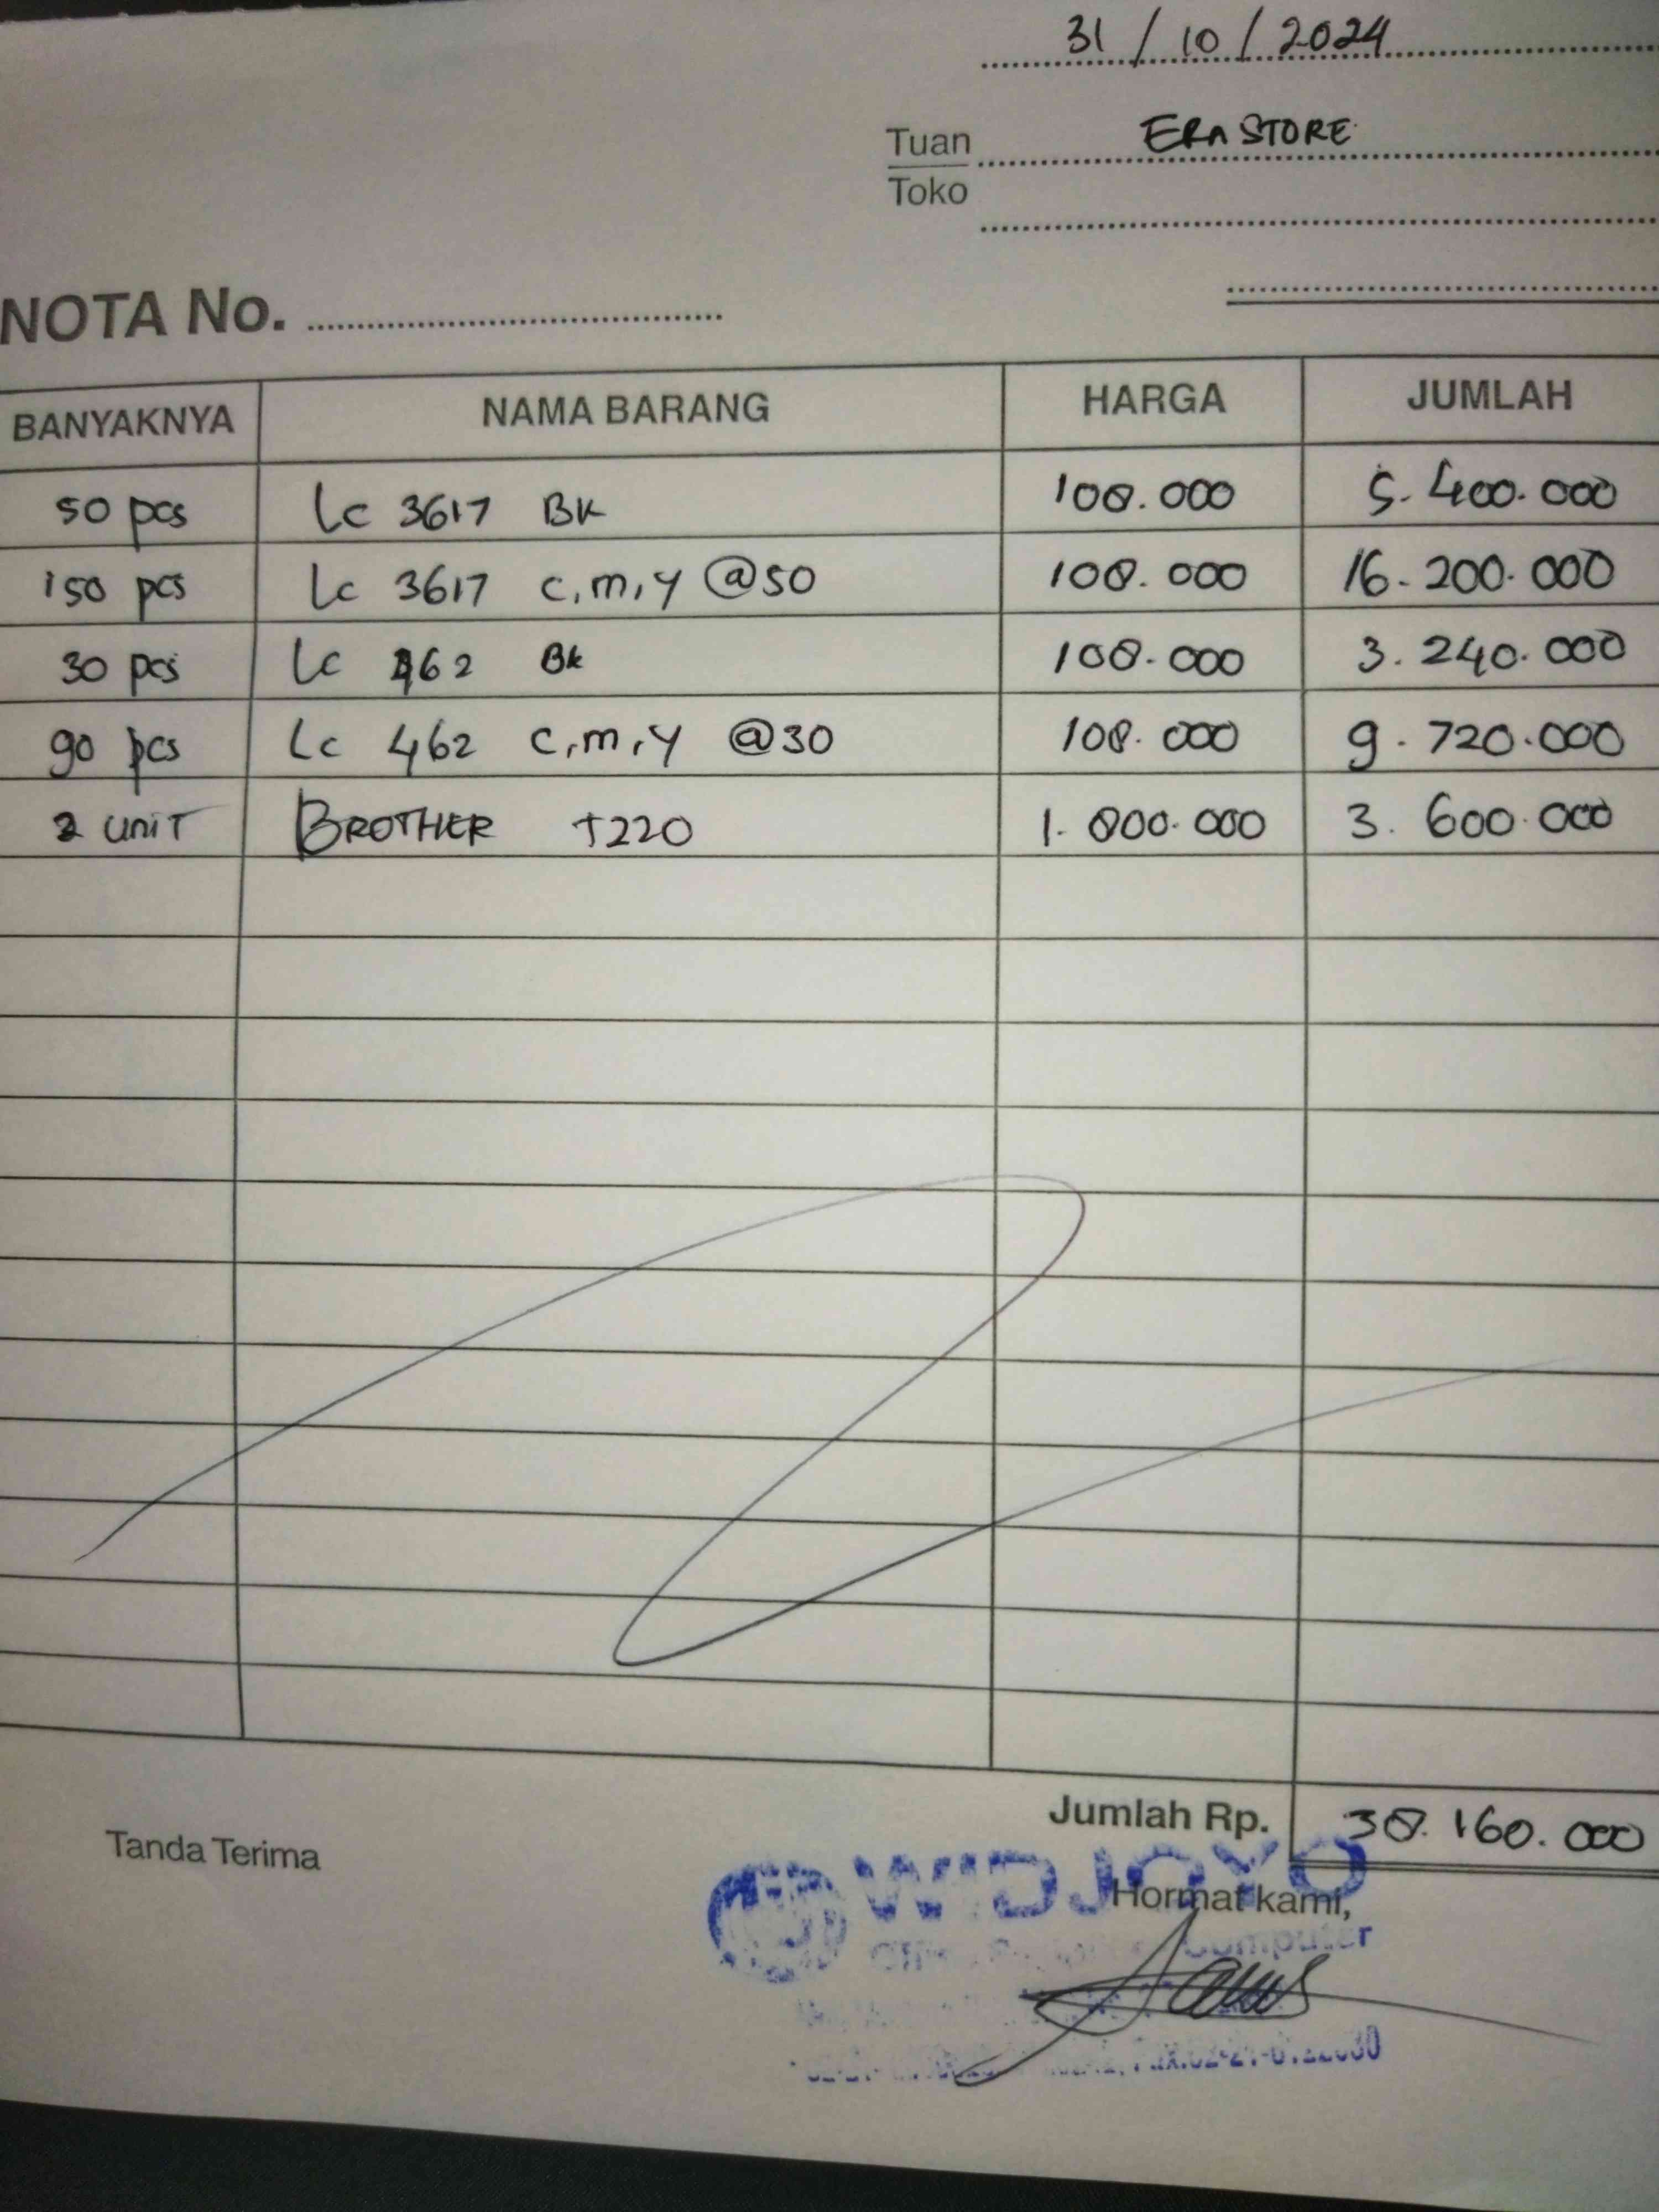 31 / 10 / 2024
Tuan ERA STORE
Toko
NOTA No.
BANYAKNYA NAMA BARANG HARGA JUMLAH
50 pcs Lc 3617 BK 108.000 5.400.000
150 pcs Lc 3617 c,m,y @50 108.000 16.200.000
30 pcs Lc 462 Bk 108.000 3.240.000
90 pcs Lc 462 c,m,y @30 108.000 9.720.000
2 UNIT BROTHER T220 1.800.000 3.600.000
Jumlah Rp. 38.160.000
Tanda Terima
WIDJOYO
Hormat kami,
Computer